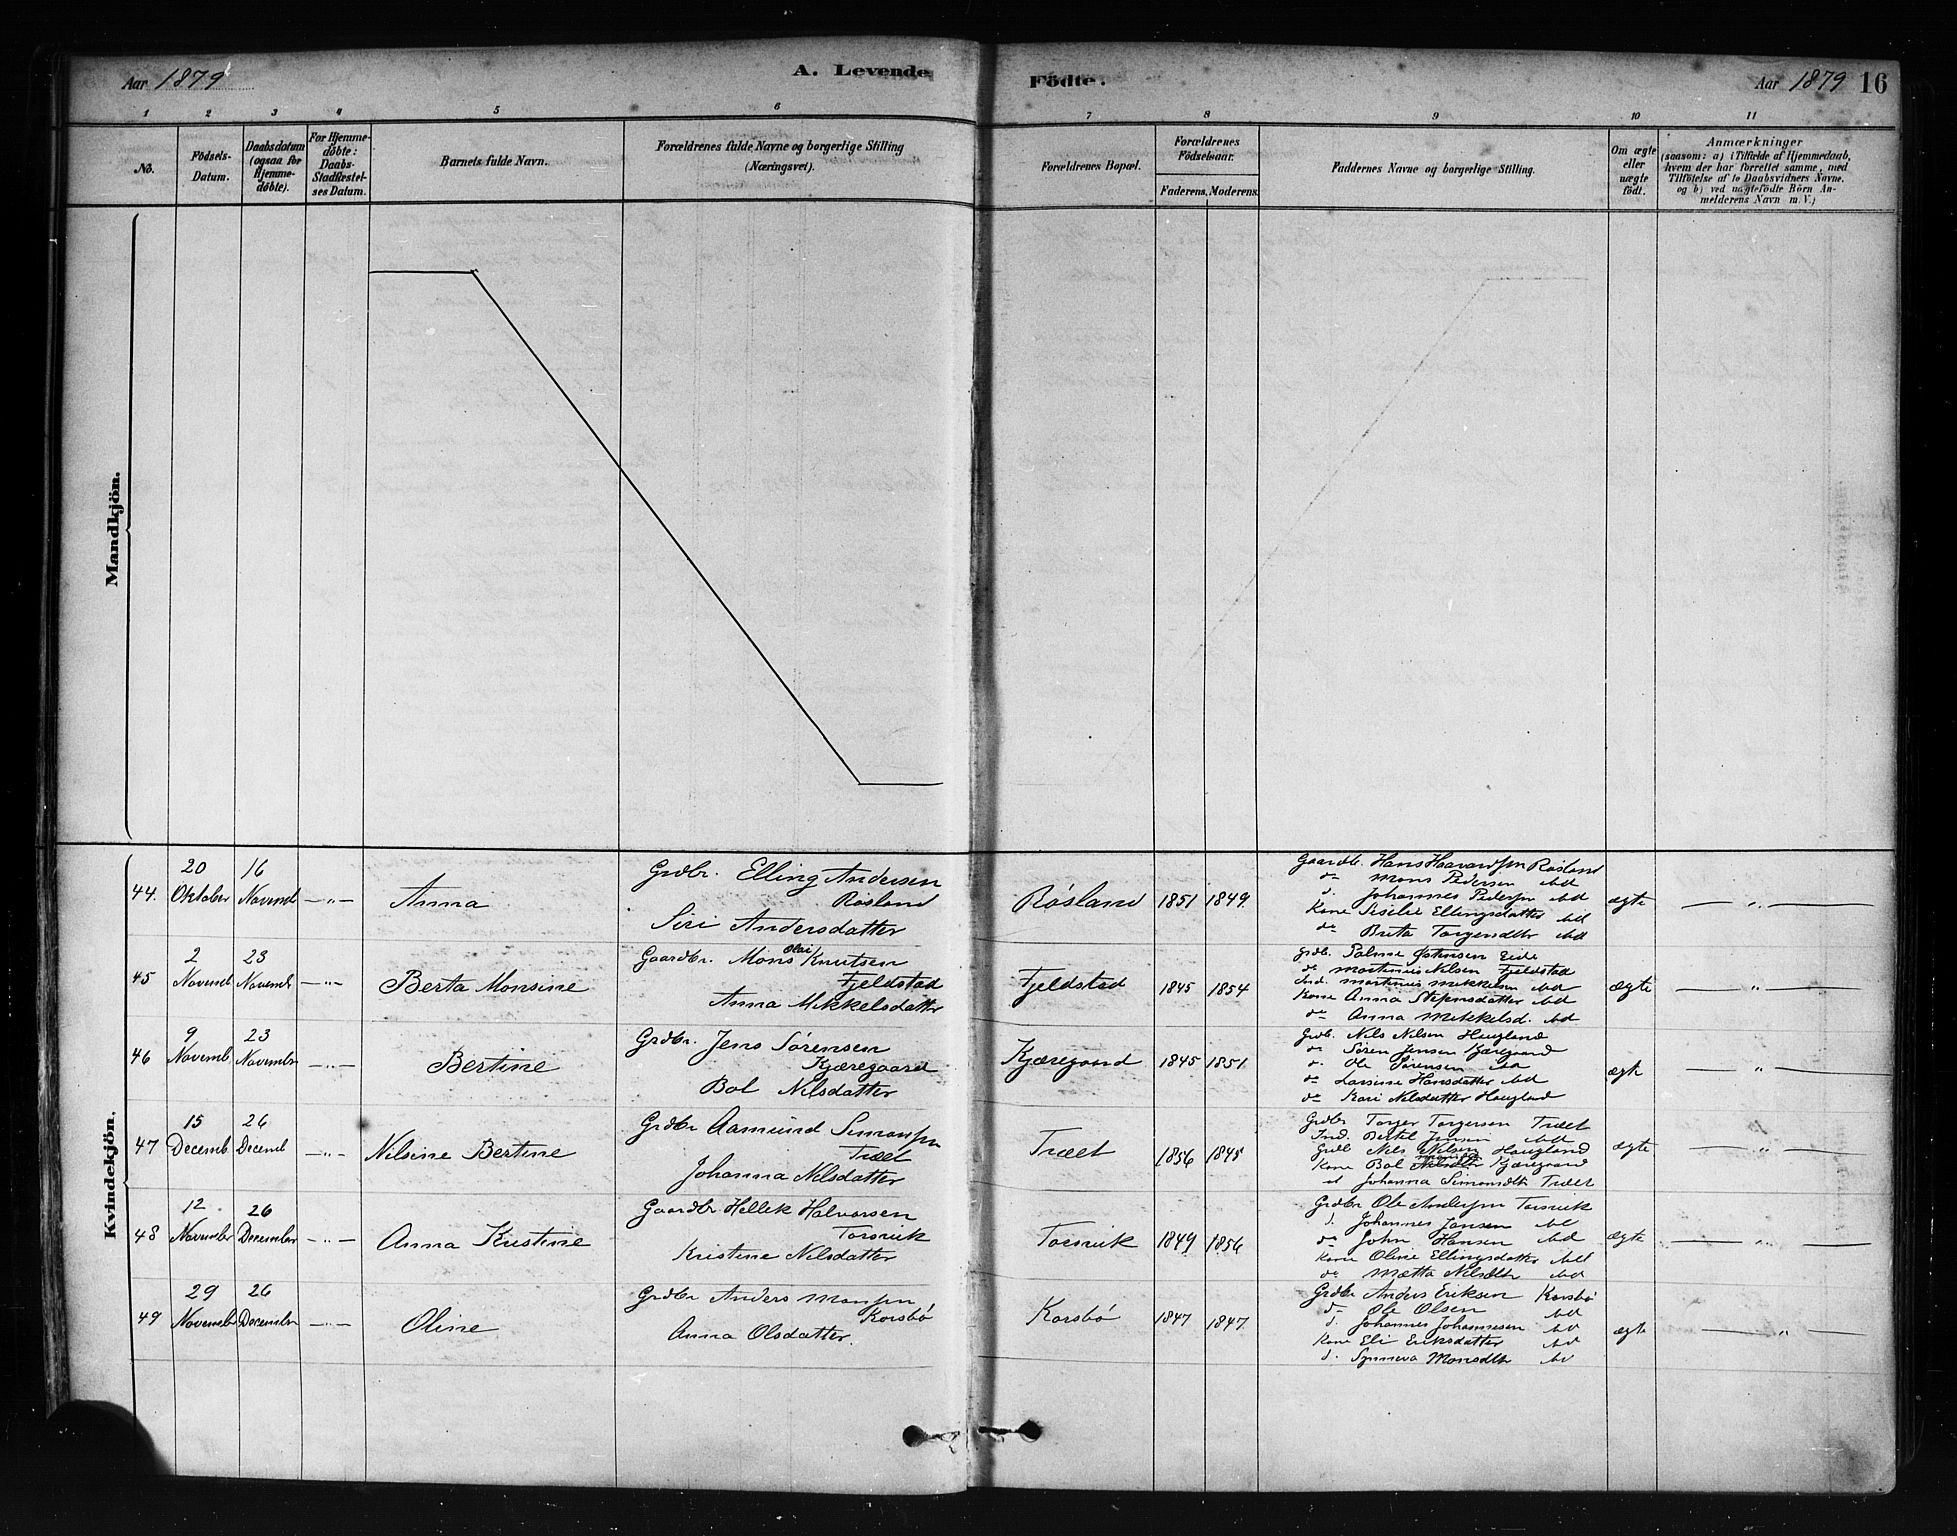 Aar 1879
A. Levende
Födte.
Aar 1879 16
1 2 3 4 5 6 7 8 9 10 11
No.
Födsels-
Datum.
Daabsdatum
(ogsaa for
Hjemme-
døbte).
For Hjemme-
døbte:
Daabs-
Stadfæstel-
ses Datum.
Barnets fulde Navn.
Forældrenes fulde Navne og borgerlige Stilling
(Næringsvei).
Forældrenes Bopæl.
Forældrenes
Födselsaar.
Faderens. Moderens.
Faddernes Navne og borgerlige Stilling.
Om ægte
eller
uægte
födt.
Anmærkninger
(saasom: a) i Tilfælde af Hjemmedaab,
hvem der har forrettet samme, med
Tilföielse af to Daabsvidners Navne.
og b) ved uægtefödte Börn An-
melderens Navn m. V.)
Mandkjön.
Kvindekjön.
44.
20
Oktober
16
Novemb
— " —
Anna
Grdbr. Elling Andersen
Røsland
Siri Andersdatter
Røsland
1851 1849.
Gaardb. Hans Haavardsen Røsland
do Mons Pedersen ibd
d. Johannes Pedersen ibd
Kone Siselie Ellingsdatter ibd
do Brita Torgersdtr ibd
ægte
— " —
45
2
Novemb
23
Novemb
— " —
Berta Monsine
Gaardbr. Mons Olai Knutsen
Fjeldstad
Anna Mikkelsdatter
Fjeldstad
1845 1854
grdb. Salme Østensen Eide
do Martinus Nilsen Fjeldstad
Ind. Martinus Mikkelsen ibd
Kone Anna ibd
do Anna Mikkelsd. ibd
ægte
— " —
46
9
Novemb.
23
Novembr
— " —
Bertine
Grdbr. Jens Sørensen
Kjæregaard
Bol Nilsdatter
Kjæregaard
1845 1851
Grdb. Nils Nilsen Haugland
do Søren Jensen Kjæregaard
d. Ole Sørensen ibd
do Larsine Hansdatter ibd
do Kari Nilsdatter Haugland
ægte
— " —
47
15
Decemb.
26
Decemb
— " —
Nilsine Bertine
Grdbr Aamund Simonsen
Træet
Johanna Nilsdatter
Træet
1856 1845
Grdbr Torger Torgersen Træet
Ind. Bertel Jensen ibd
Grdb Nils Nilsen Haugland
Kone Bol Nilsdtr Kjæregaard
Johanna Simonsdtr Træet
ægte
— " —
48
12
Novembr
26
Decembr
— " —
Anna Kristine
Gaardbr Hellek Halvorsen
Torsvik
Kristine Nilsdatter
Torsvik
1849 1856
Grdbr Ole Andersen Torsvik
d. Johannes Jansen ibd
do John Hansen ibd
Kone Oline Ellingsdatter ibd
do Mætta Nilsdtr ibd
ægte
— " —
49
29
Novembr
26
Decembr
— " —
Oline
Grdbr Anders Monsen
Korsbø
Anna Olsdatter.
Korsbø
1847 1847.
Grdbr Anders Eriksen Korsbø
do Ole Olsen ibd
d. Johannes Johannesen ibd
Kone Eli Eriksdatter ibd
d. Synneva Monsdtr ibd
ægte
— " —